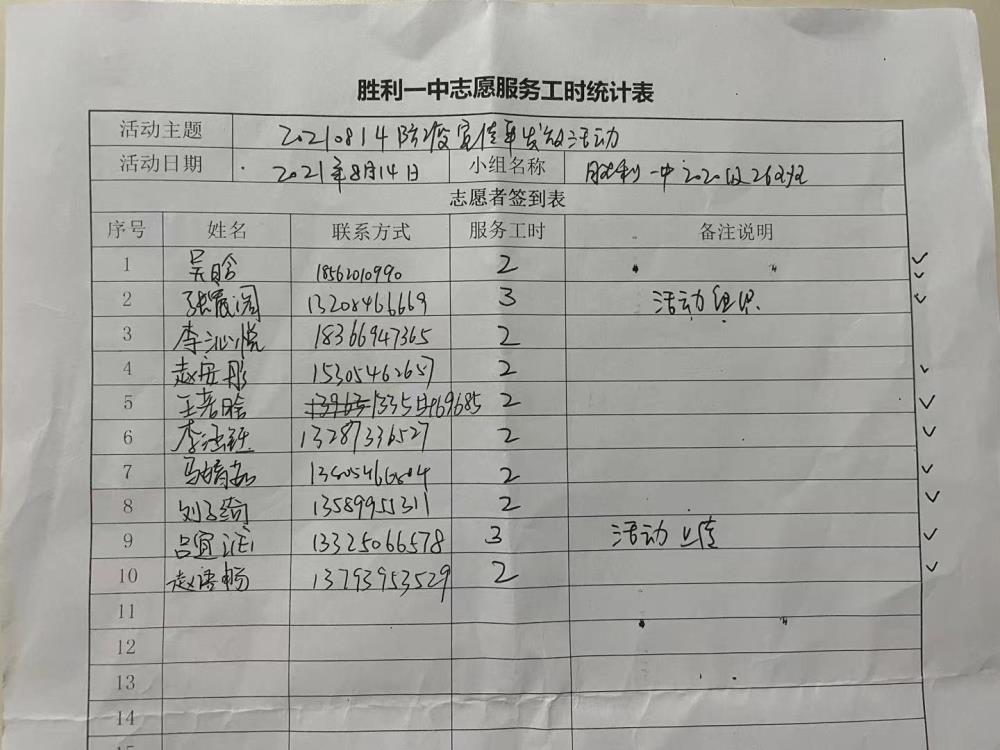 胜利一中志愿服务工时统计表
活动主题 20210814防疫宣传单发放活动
活动日期 2021年8月14日 小组名称 胜利一中2020级26班
志愿者签到表
序号 姓名 联系方式 服务工时 备注说明
1 吴晗 18562010990 2
2 张 13208466669 3 活动组织
3 李沁悦 18366947365 2
4 赵安彤 15305462657 2
5 王若晗 2
6 李 13287336527 2
7 马 2
8 刘子绮 13589951311 2
9 吕宜 13325066578 3 活动上传
10 赵语畅 13793953529 2
11
12
13
14
15